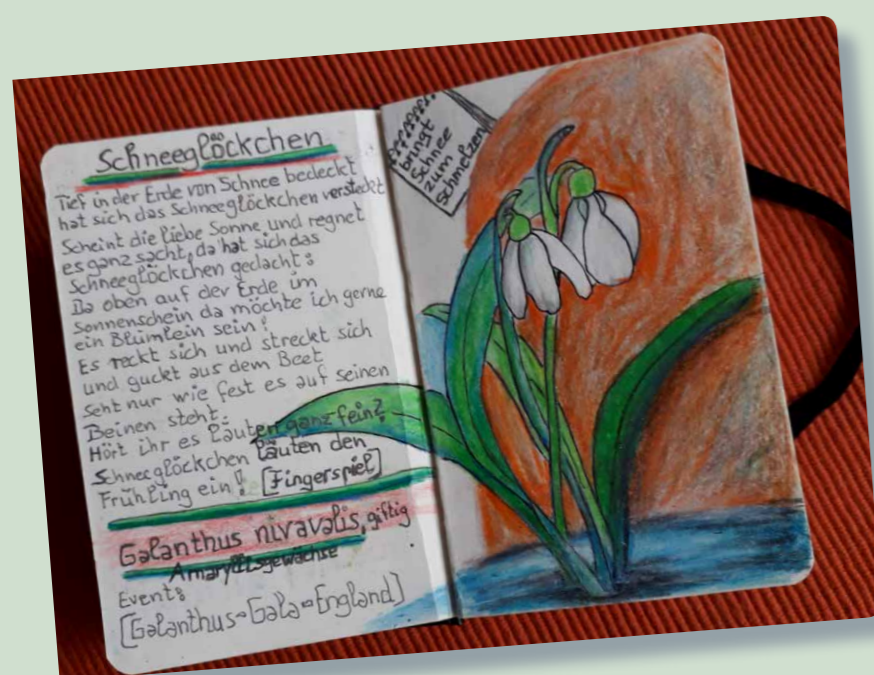 Schneeglöckchen
Tief in der Erde von Schnee bedeckt
hat sich das Schneeglöckchen versteckt
Scheint die liebe Sonne und regnet
es ganz sacht, da hat sich das
Schneeglöckchen gedacht:
Da oben auf der Erde im
Sonnenschein da möchte ich gerne
ein Blümlein sein!
Es reckt sich und streckt sich
und guckt aus dem Beet
Seht nur wie fest es auf seinen
Beinen steht.
Hört ihr es läuten ganz fein?
Schneeglöckchen läuten den
Frühling ein! [Fingerspiel]
Galanthus nivavalis, giftig
Amaryllisgewächse
Event:
[Galanthus-Gala-England]
bringt
Schnee
zum
schmelzen